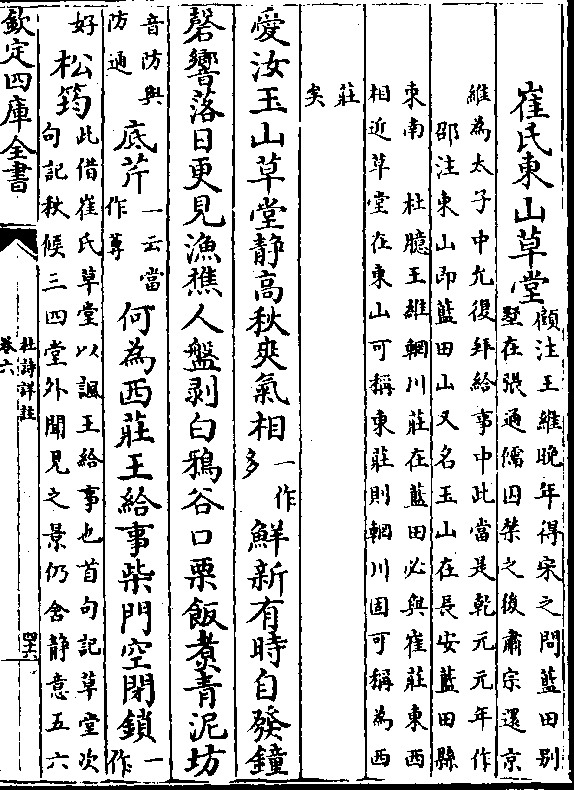 崔氏東山草堂
顧注王維晚年得宋之問藍田别
墅在張通儒囚禁之後肅宗還京
維為太子中允復拜給事中此當是乾元元年作
邵注東山即藍田山又名玉山在長安藍田縣
東南 杜臆王維輞川莊在藍田必與崔莊東西
相近草堂在東山可稱東莊則輞川固可稱為西
莊
矣
愛汝玉山草堂静高秋爽氣相一作多鮮新有時自發鐘
磬響落日更見漁樵人盤剥白鴉谷口栗飯煮青泥坊
音防與防通底芹一云當作蓴何為西莊王給事柴門空閉鎖一作
好松筠
此借崔氏草堂以諷王給事也首句記草堂次
句記秋候三四堂外聞見之景仍含静意五六
欽定四庫全書
杜詩詳註
卷六